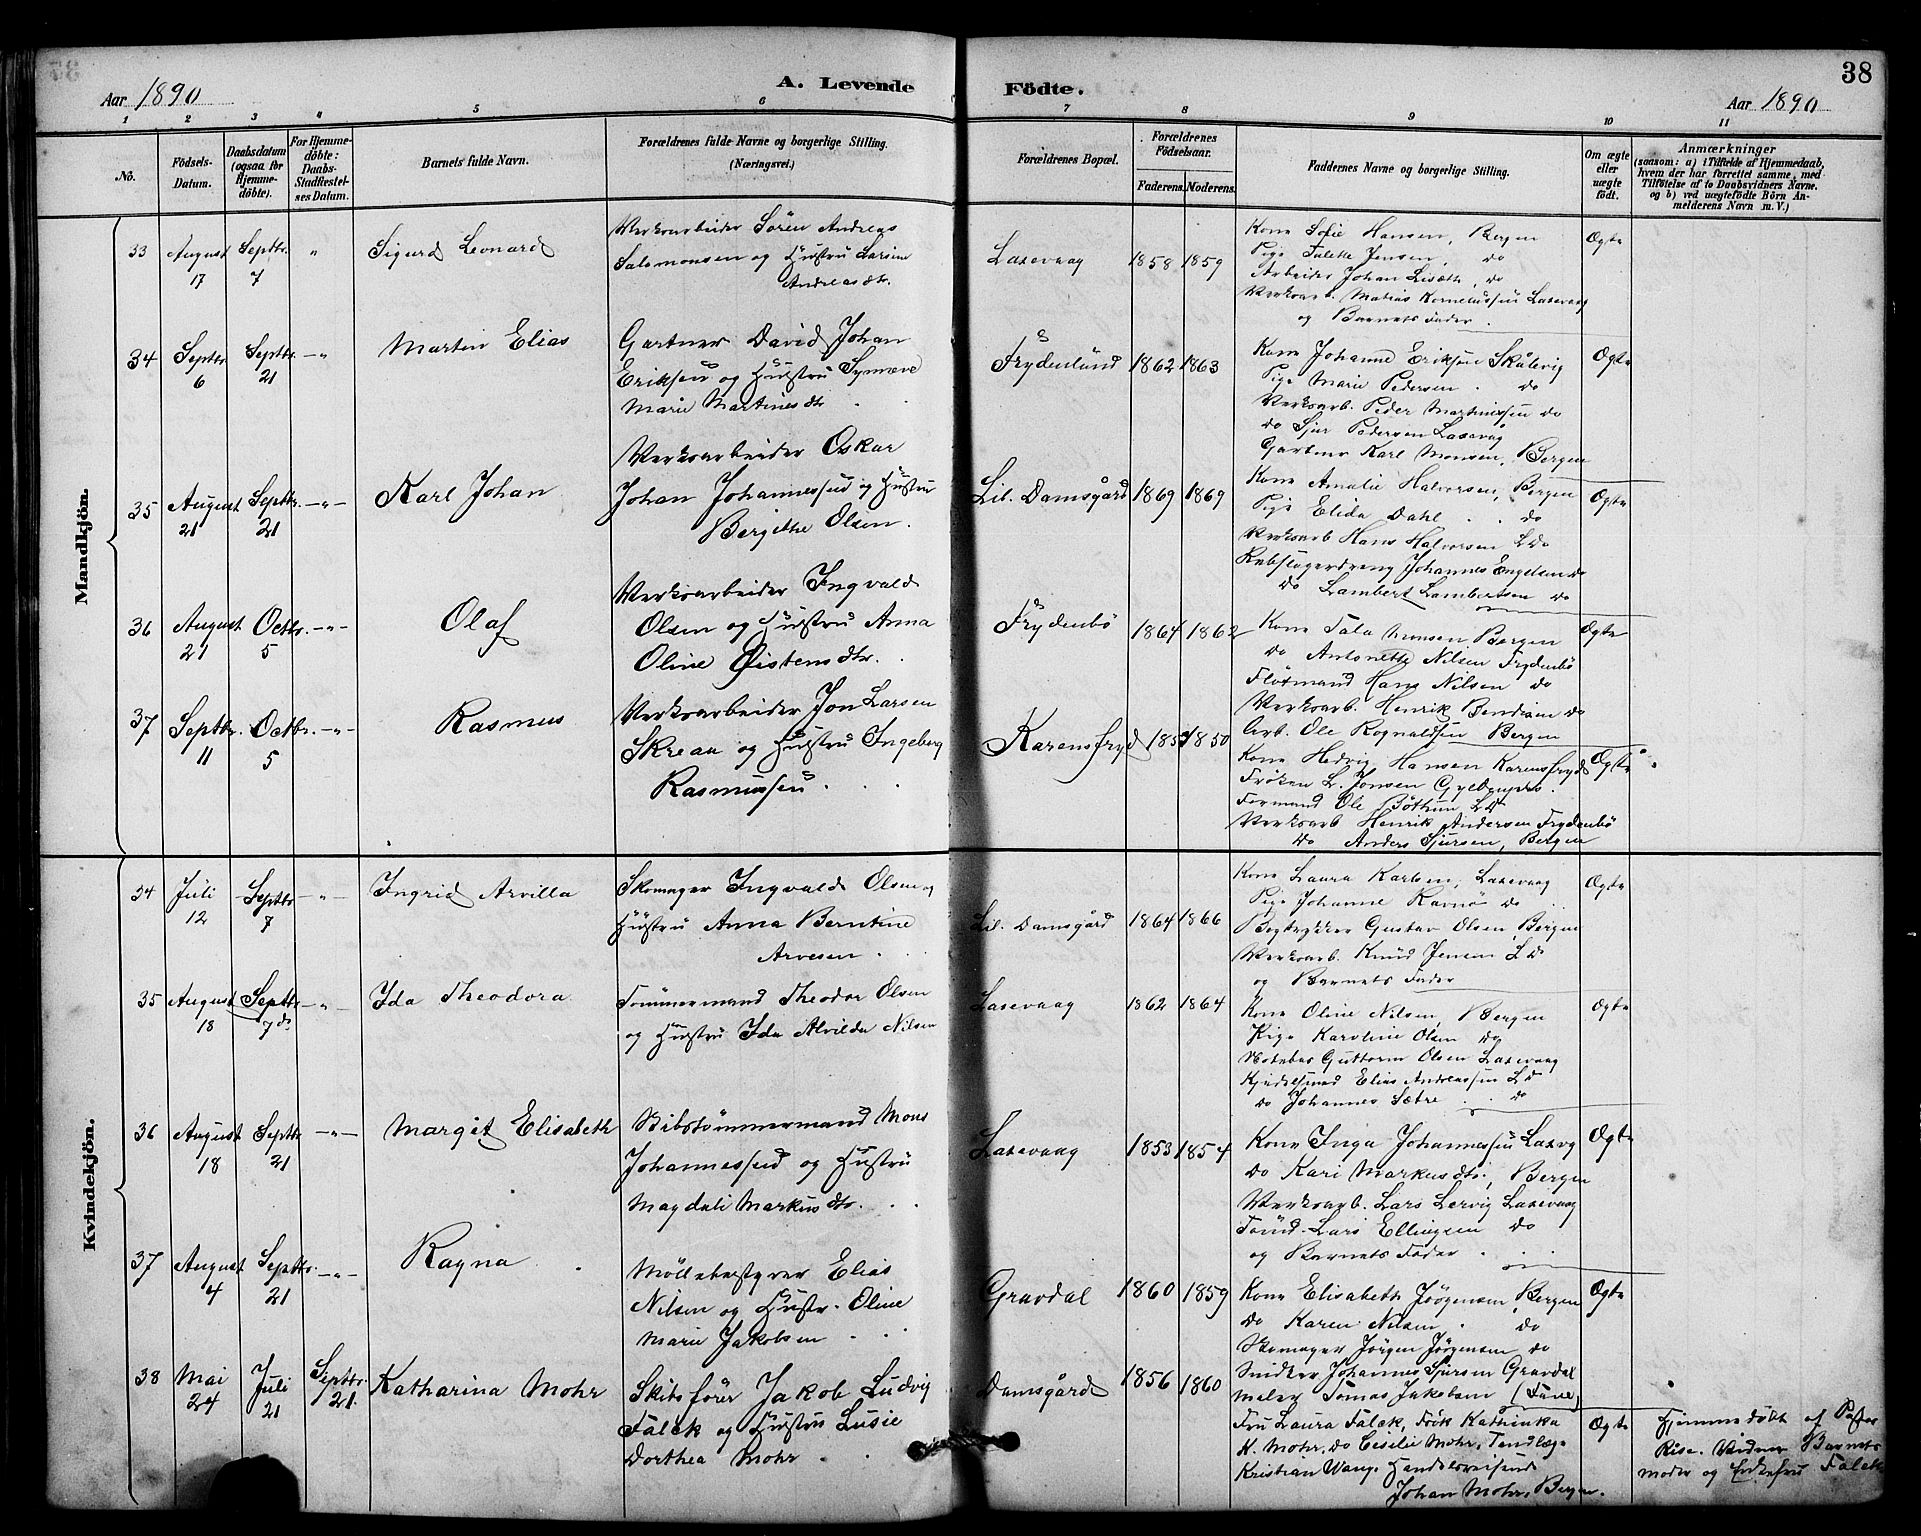 38
Aar 1890
A. Levende Födte.
Aar 1890
1 2 3 4 5 6 7 8 9 10 11
No.
Födsels-Datum.
Daabsdatum (ogsaa for Hjemme-döbte).
For Hjemme-döbte: Daabs-Stadfæstel-ses Datum.
Barnets fulde Navn.
Forældrenes fulde Navne og borgerlige Stilling.
(Næringsvei.)
Forældrenes Bopæl.
Forældrenes Födselsaar.
Faderens. Moderens.
Faddernes Navne og borgerlige Stilling.
Om ægte eller uægte födt.
Anmærkninger
(saasom: a) i Tilfælde af Hjemmedaab, hvem der har forrettet samme, med Tilföielse af to Daabsvidners Navne. og b) ved uægtefödte Börn An-melderens Navn m. V.)
Mandkjön.
33 August 17 Septbr. 7 " Sigurd Leonard
Verksarbeider Sören Andreas
Salomonsen og Hustru Larsine
Andreasdtr.
Laxevaag 1858 1859
Kone Sofie Hansen, Bergen
Pige Talette Jensen, do
Arbeider Johan Liseth, do
Verksarb. Matias Korneliussen Laxevaag
og Barnets Fader.
Ægte
34 Septbr 6 Septbr. 21 -"- Martin Elias
Gartner David Johan
Eriksen og Hustru Synneve
Marie Martinesdtr
Frydenlund 1862 1863
Kone Johanne Eriksen Skålevig
Pige Marie Pedersen do
Verksarb. Peder Martinussen do
do Sjur Pedersen Laxevåg
Gartner Karl Monsen, Bergen
Ægte
35 August 21 Septbr. 21 -"- Karl Johan
Verksarbeider Oskar
Johan Johannessen og Hustru
Bergithe Olsen.
Lil. Damsgård 1869 1869
Kone Amalie Halvorsen, Bergen
Pige Elida Dahl do
Verksarb Hans Halvorsen L do
Rebslagerdreng Johannes Engelsen do
do Lambert Lambertsen do
Ægte
36 August 21 Octbr. 5 -"- Olaf
Verksarbeider Ingvald
Olsen og Hustru Anna
Oline Øistensdtr.
Frydenbö 1864 1862
Kone Bergen
do Antonette Nilsen Frydenbö
Flötmand Hans Nilsen do
Verksarb. Henrik Bendixen do
Arb. Ole Rognaldsen Bergen
Ægte
37 Septbr. 11 Octbr. 5 -"- Rasmus
Verksarbeider Jon Larsen
Skreaa og Hustru Ingeborg
Rasmussen
Karensfryd 1850
Kone Hedvig Hansen Karensfryd
Fröken L. Jonsen
Formand Ole Böthun L do
Verksarb Henrik Andersen Frydenbö
do Anders Sjursen, Bergen
Ægte
Kvindekjön.
34 Juli 12 Septbr 7 -"- Ingrid Arvilla
Skomager Ingvald Olsen og
Hustru Anna Berntine
Arvesen
Lil. Damsgård 1864 1866
Kone Laura Karlsen, Laxevaag
Pige Johanne Ravnö do
Bogtrykker Gustav Olsen, Bergen
Verksarb. Knud Jensen L do
og Barnets Fader
Ægte
35 August 18 Septbr 7 do -"- Ida Theodora
Tömmermand Theodor Olsen
og Hustru Ida Alvilda Nilsen
Laxevaag 1862 1864
Kone Oline Nilsen, Bergen
Pige Karoline Olsen do
Guttorm Olsen Laxevaag
Kjedelsmed Elias Andreassen L do
do Johannes Sætre do
Ægte
36 August 18 Septbr 21 -"- Margit Elisabeth
Skibstömmermand Mons
Johannessen og Hustru
Magdeli Markusdtr.
Laxevaag 1853 1854
Kone Inga Johannessen Laxevg
do Kari Markusdtr, Bergen
Verksarb. Lars Lervig Laxevaag
Tömd. Lars Ellingsen do
og Barnets Fader
Ægte
37 August 4 Septbr. 21 -"- Ragna
Möllebestyrer Elias
Nilsen og Hustr. Oline
Marie Jakobsen
Gravdal 1860 1859
Kone Elisabeth Jörgensen, Bergen
do Karen Nilsen do
Skomager Jörgen Jörgensen do
Snidker Johannes Sjursen Gravdal
Maler Tomas Jakobsen (Fane)
Ægte
38 Mai 24 Juli 21 Septbr. 21. Katharina Mohr
Skibsförer Jakob Ludvig
Falck og Hustru Lusie
Dorthea Mohr
Damsgård 1856 1860
Fru Laura Falck, Frök Kathinka
K. Mohr, do Cisilie Mohr, Tandlæge
Kristian Wang, Handelsreisend
Johan Mohr, Bergen.
Ægte
Hjemmedöbt af Pastor
Rise. Vidner Barnets
moder og Enkefru Falck